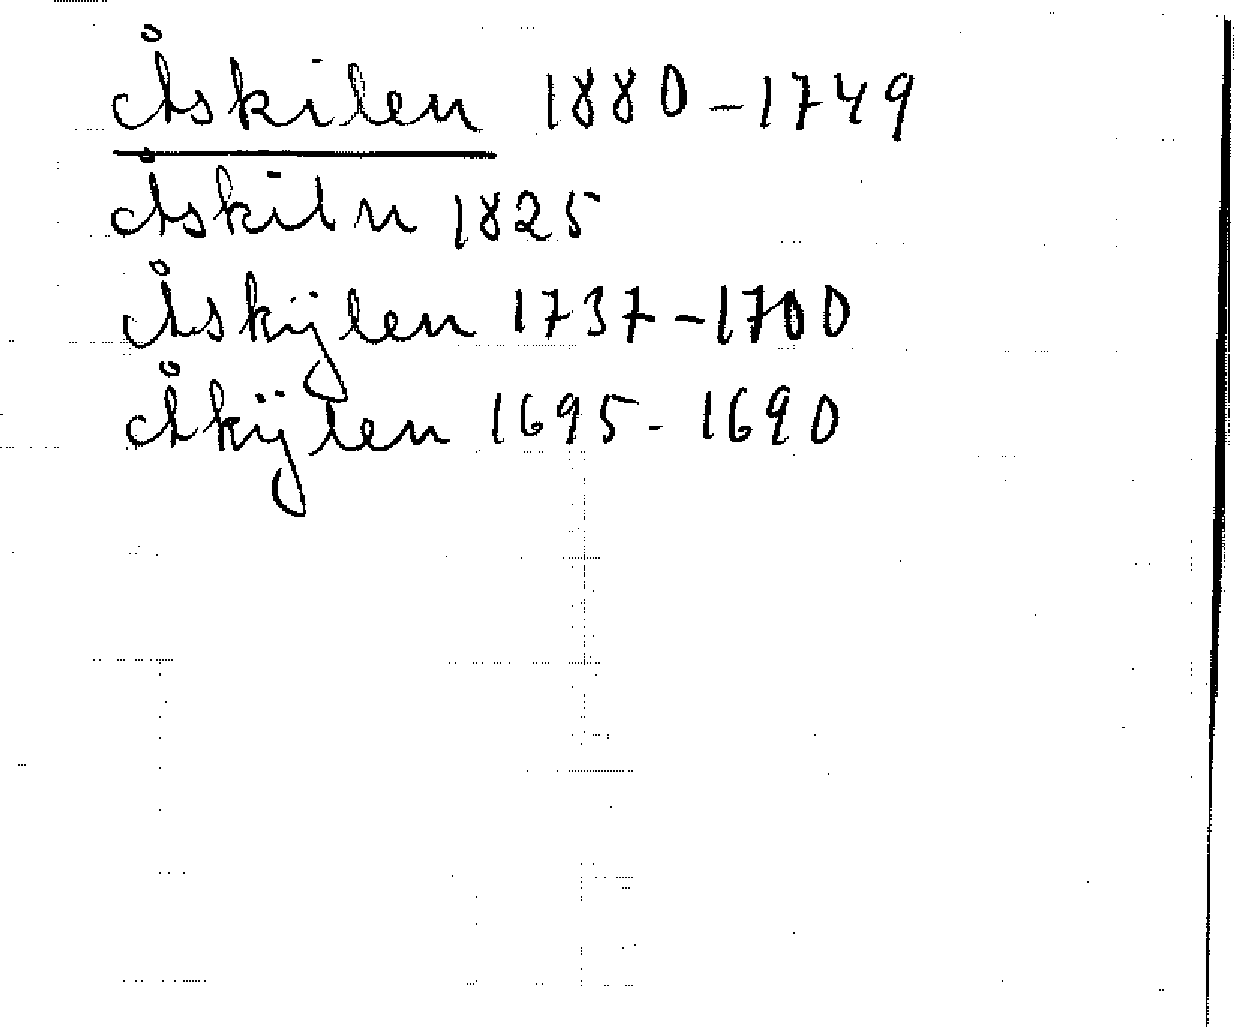 Åskilen 1880-1749
Åskiln 1825
Åskÿlen 1737-1700
Åkÿlen 1695-1690